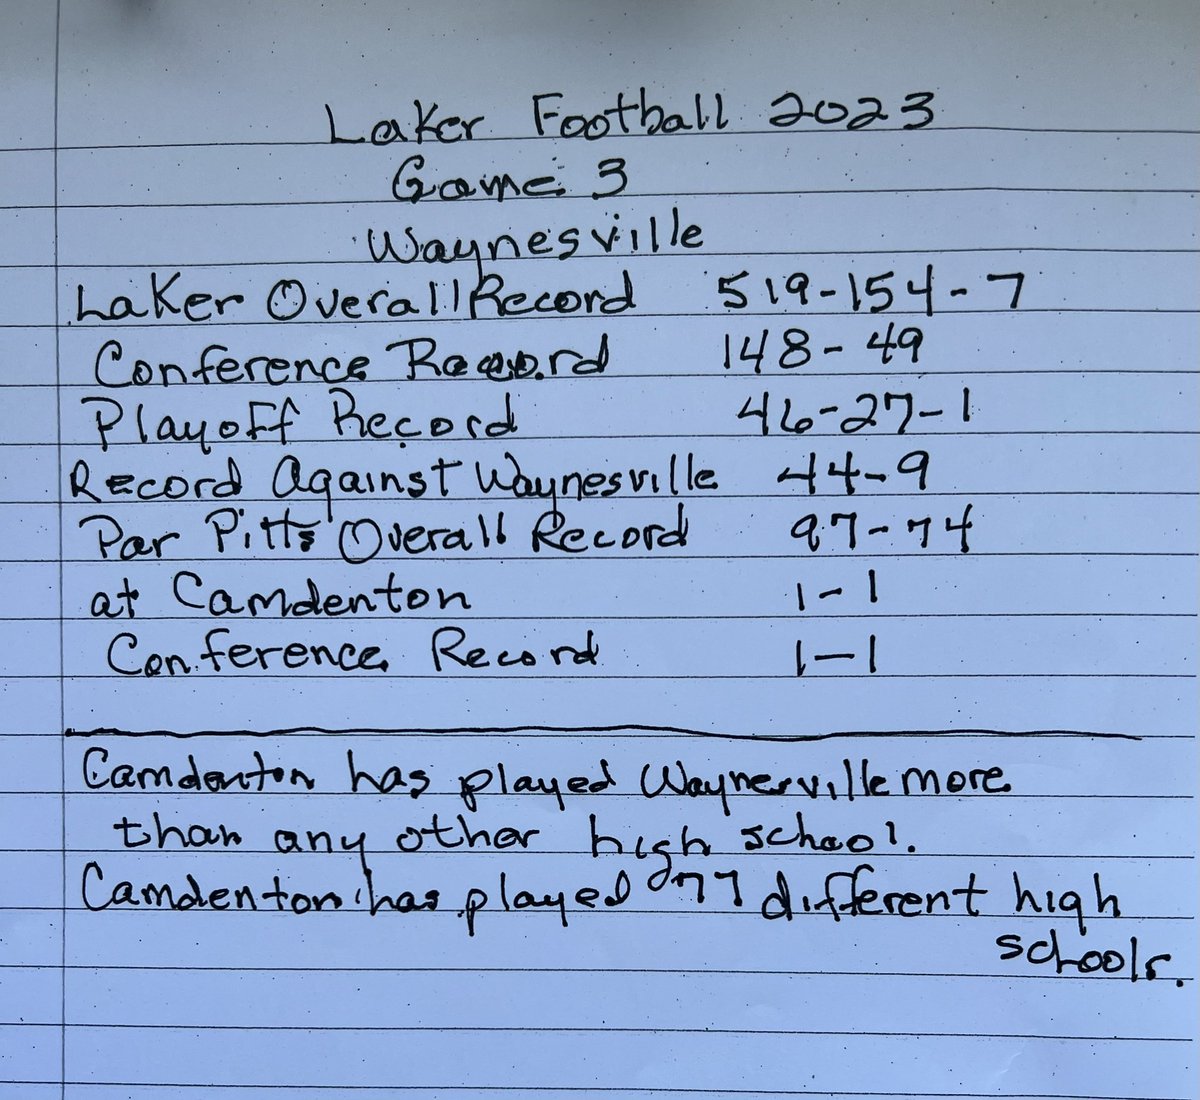 Laker Football 2023
Game 3
Waynesville
Laker Overall Record 519-154-7
Conference Record 148-49
Playoff Record 46-27-1
Record Against Waynesville 44-9
Par Pitts Overall Record 97-74
at Camdenton 1-1
Conference Record 1-1
Camdenton has played Waynesville more
than any other high school.
Camdenton has played 77 different high
schools.